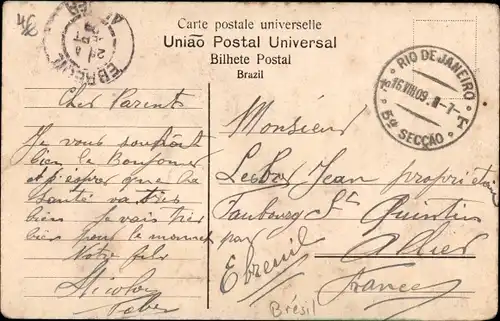 Carte postale universelle
União Postal Universal
Bilhete Postal
Brazil
EBREUIL
RIO DE JANEIRO
16 VIII 09
5ª SECÇÃO
Cher Parents
Je vous souhait
bien le Bonjour
et j'esper que la
santé va très
bien je vais trer
bien pour le moment
Votre fils
Nicolas
Monsieur
Jean proprietaire
Faubourg St Quintin
par Ebreuil Allier
France
Brésil